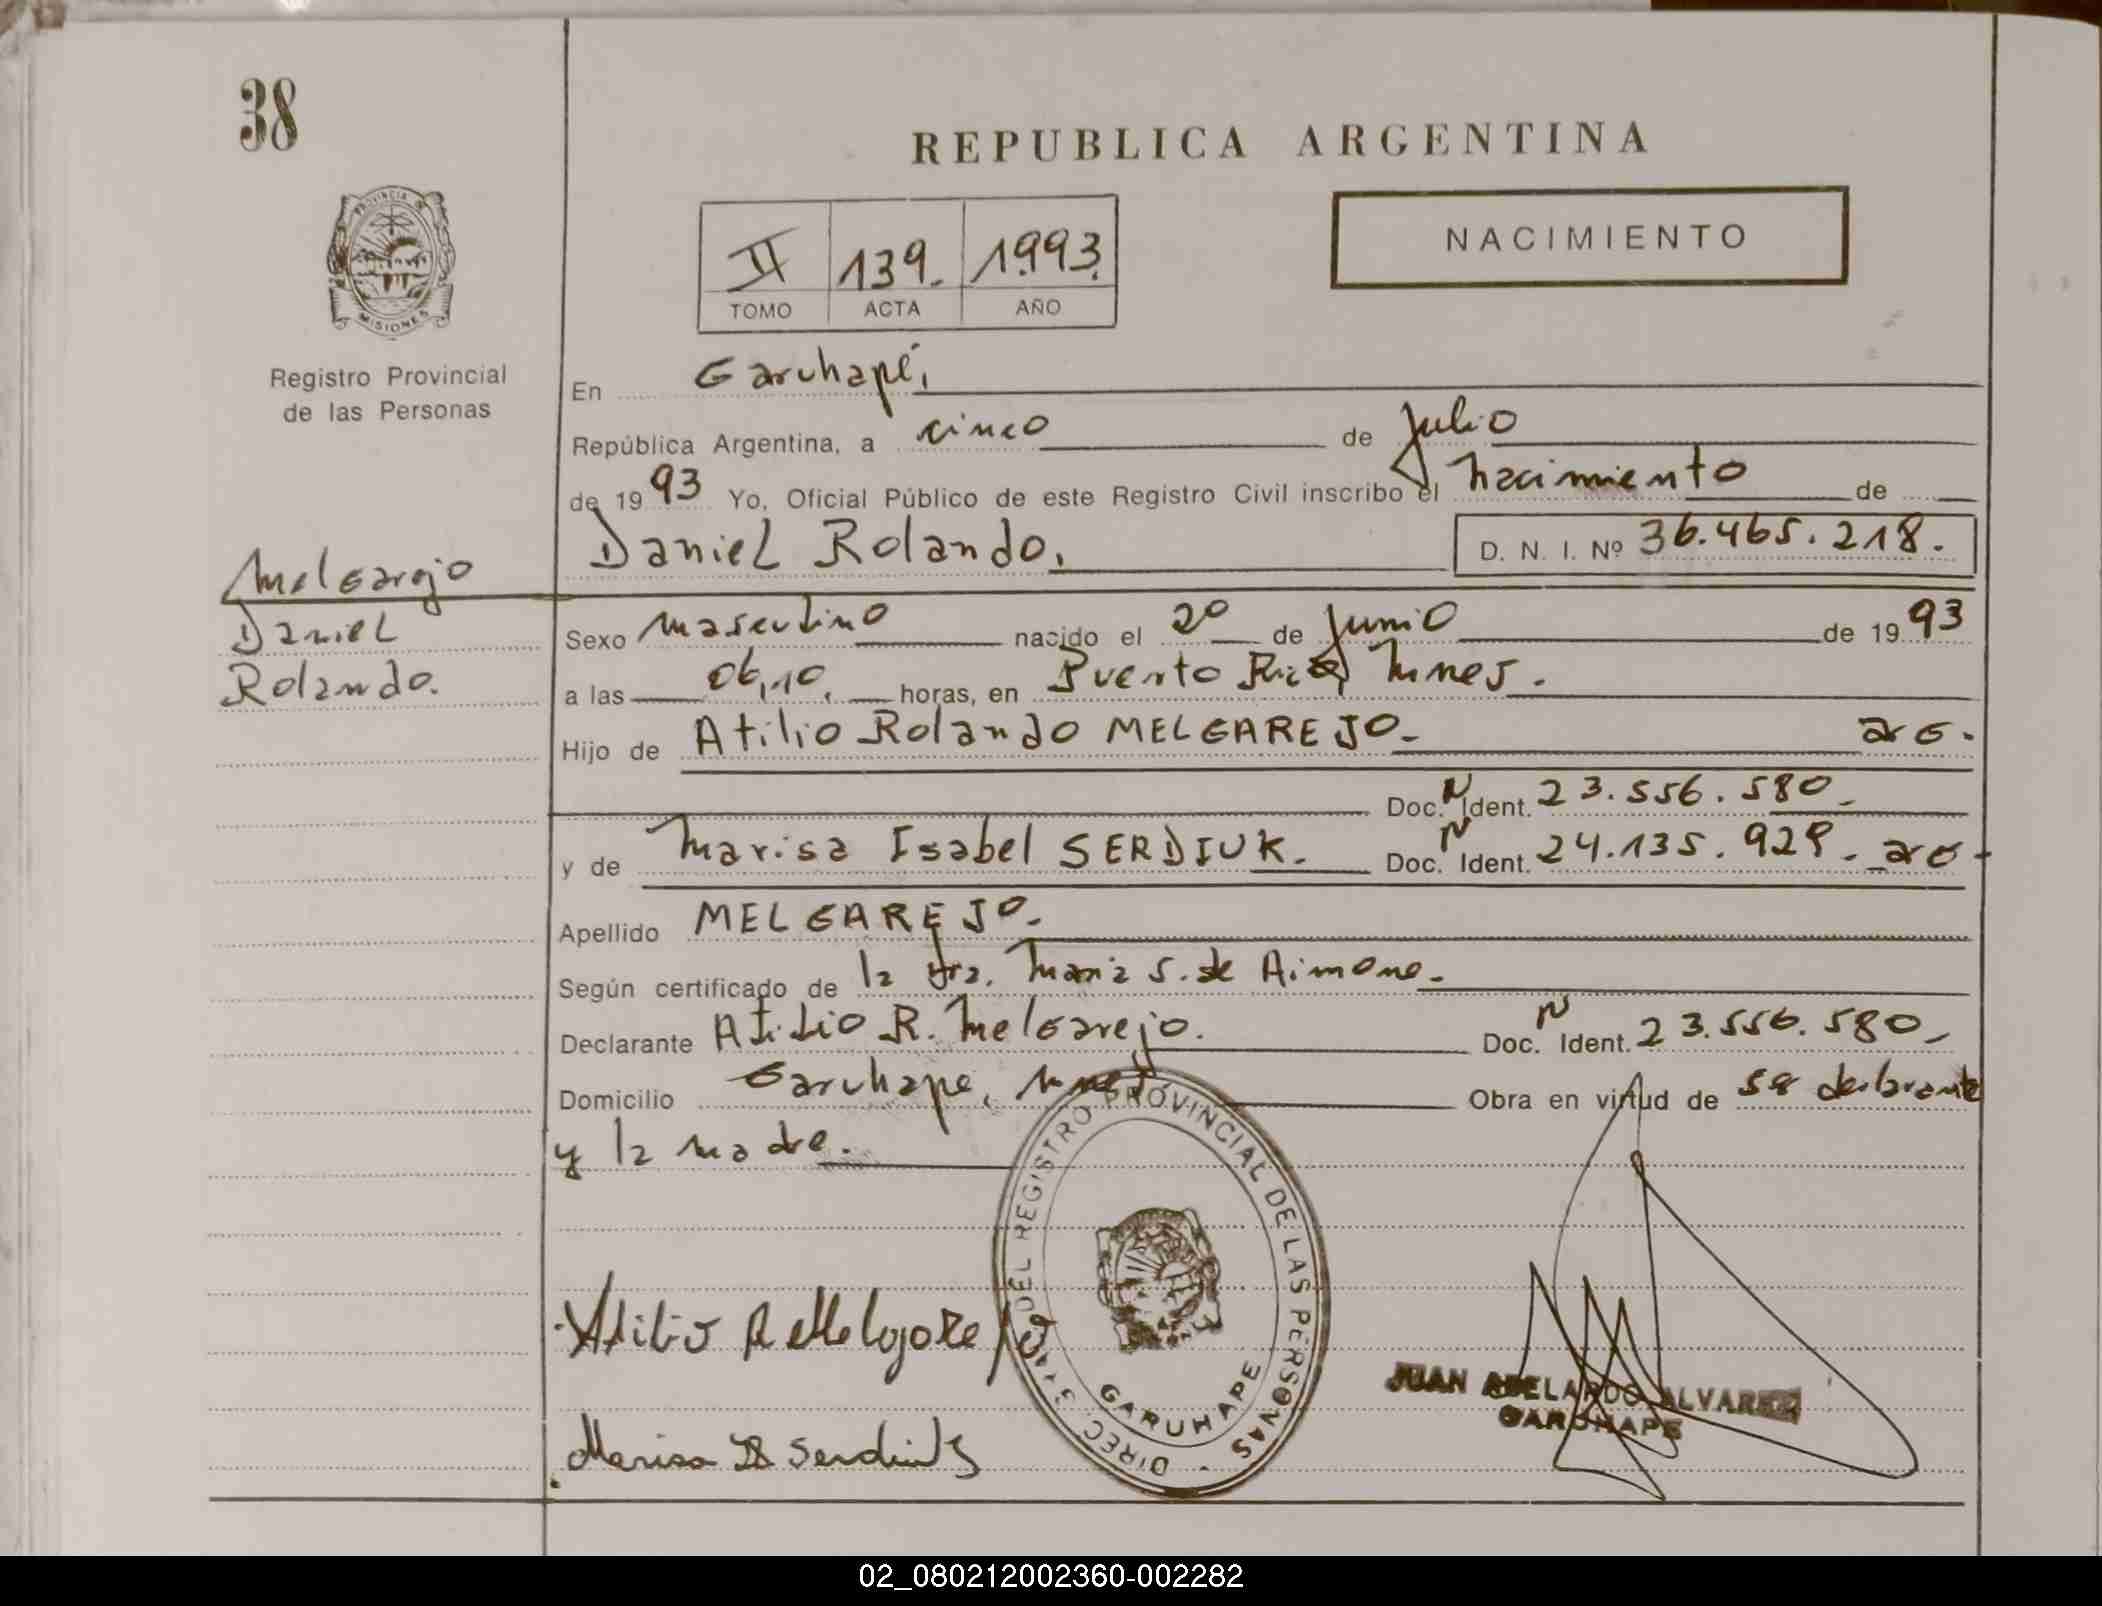 38
REPUBLICA ARGENTINA
NACIMIENTO
II 139. 1993.
TOMO ACTA AÑO
PROVINCIA DE
MISIONES
Registro Provincial
de las Personas
En Garuhapé,
República Argentina, a cinco de Julio
de 1993 Yo, Oficial Público de este Registro Civil inscribo el nacimiento de
Daniel Rolando, D. N. I. Nº 36.465.218.
Melgarejo
Daniel
Rolando.
Sexo masculino nacido el 20 de Junio de 1993
a las 06,10, horas, en Puerto Rico, Mnes.
Hijo de Atilio Rolando MELGAREJO- arg.
Doc. N Ident. 23.556.580-
y de Marisa Isabel SERDIUK. Doc. N Ident. 24.135.929- arg-
Apellido MELGAREJO-
Según certificado de la Dra. Maria S. de Aimone-
Declarante Atilio R. Melgarejo. Doc. N Ident. 23.556.580-
Domicilio Garuhape, Mnes Obra en virtud de ser declarante
y la madre.
DIREC. GRAL. DEL REGISTRO PROVINCIAL DE LAS PERSONAS
GARUHAPE
Atilio R Melgarejo
Marisa I Serdiuk
JUAN ABELARDO ALVAREZ
GARUHAPE
02_080212002360-002282